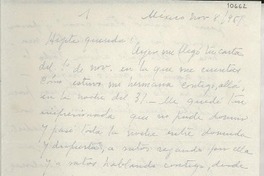 10662
1
México Nov 8, 1951
Hijita querida:
Ayer me llegó tu carta
del 1º de nov. en la que me cuentas
cómo estuvo mi hermana contigo, ella,
en la noche del 31. - Me quedé tan
impresionada que no pude dormir
y pasé toda la noche entre dormida
y despierta, a ratos rogando por ella
y a ratos hablando contigo, desde